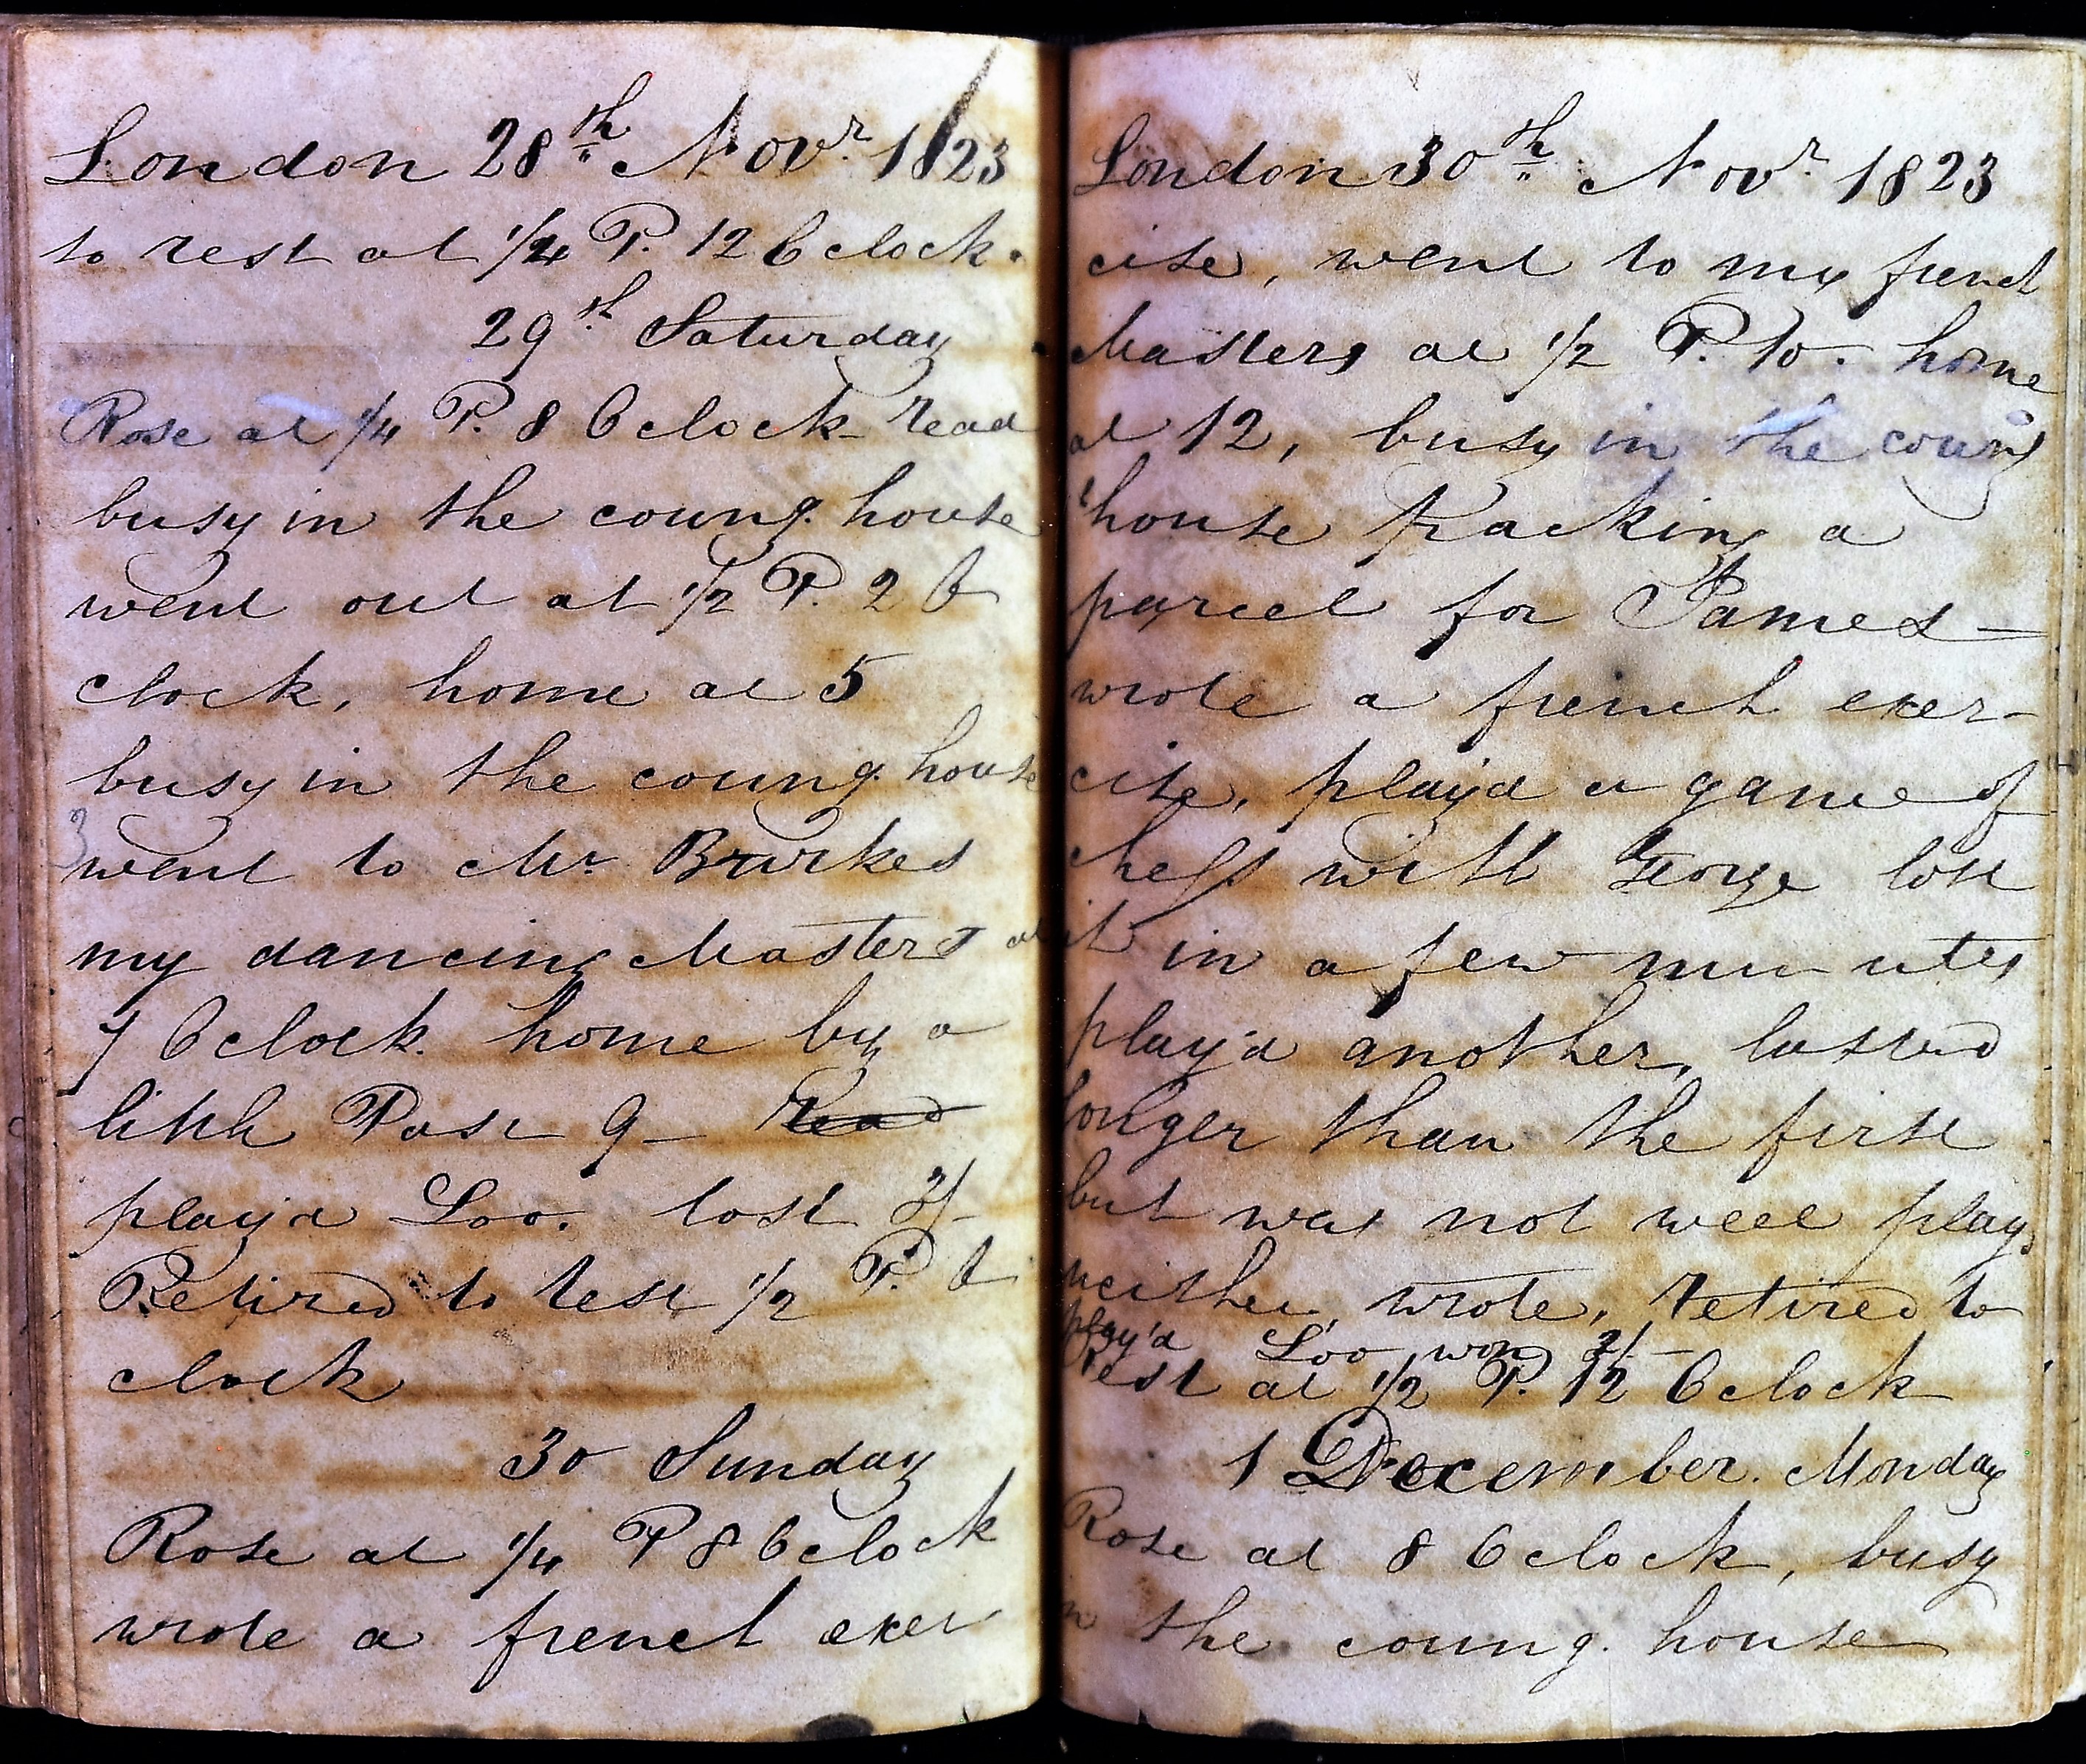 London 28th Novr. 1823
to rest at 1/4 P. 12 Oclock.
29th Saturday
Rose at 1/4 P. 8 Oclock read
busy in the coung. house
went out at 1/2 P. 2 O
clock, home at 5
busy in the coung. house
went to Mr. Burkes
my dancing Masters at
7 Oclock. home by a
little Past 9 – Read
play'd Loo. lost 2/-
Retired to rest 1/2 P. O
clock
30 Sunday
Rose at 1/4 P 8 Oclock
wrote a french exer
London 30th Novr. 1823
cise, went to my french
Masters at 1/2 P. 10. home
at 12, busy in the coung
house packing a
parcel for James –
wrote a french exer-
cise, play'd a game of
chess with George lost
it in a few minutes
play'd another, lasted
longer than the first
but was not well play'd
neither, wrote, retired to
play'd Loo won 2/-
rest at 1/2 P. 12 Oclock
1 December. Monday
Rose at 8 Oclock, busy
in the coung. house